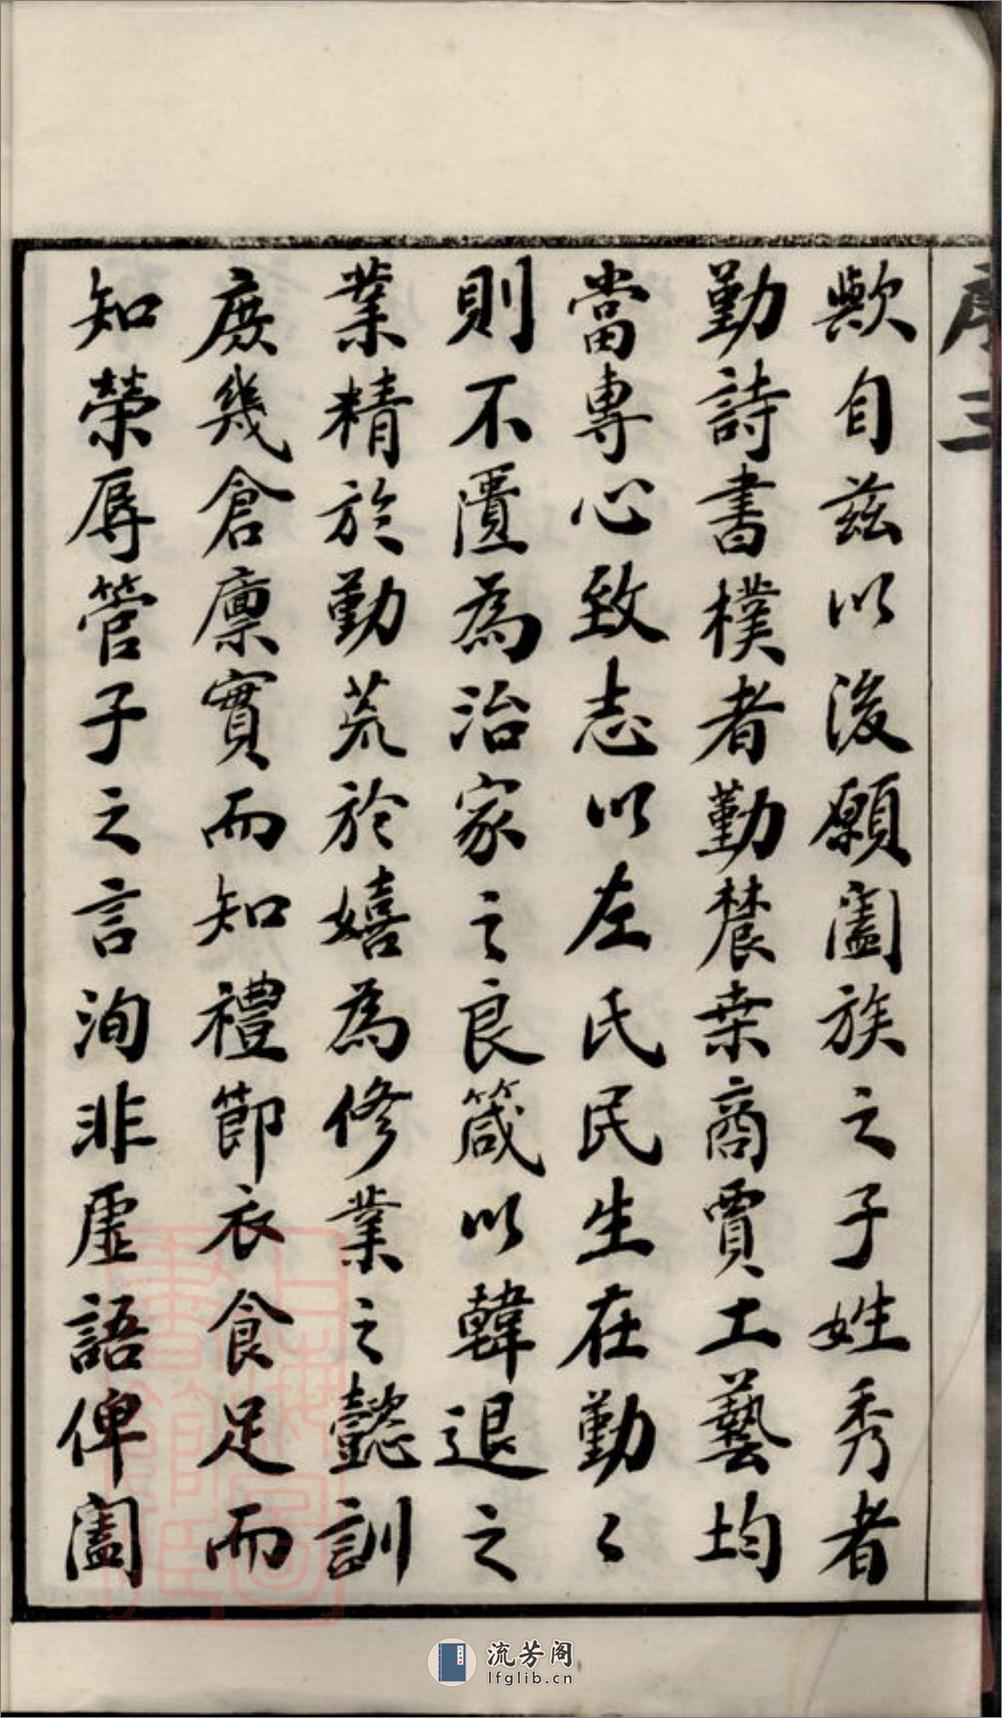 序 三
歟自茲以後願闔族之子姓秀者
勤詩書樸者勤農桒商賈工藝均
當專心致志以左氏民生在勤〻
則不匱為治家之良箴以韓退之
業精於勤荒於嬉為修業之懿訓
庶幾倉廪實而知禮節衣食足而
知榮辱管子之言洵非虛語俾闔
流芳阁
lfglib.cn